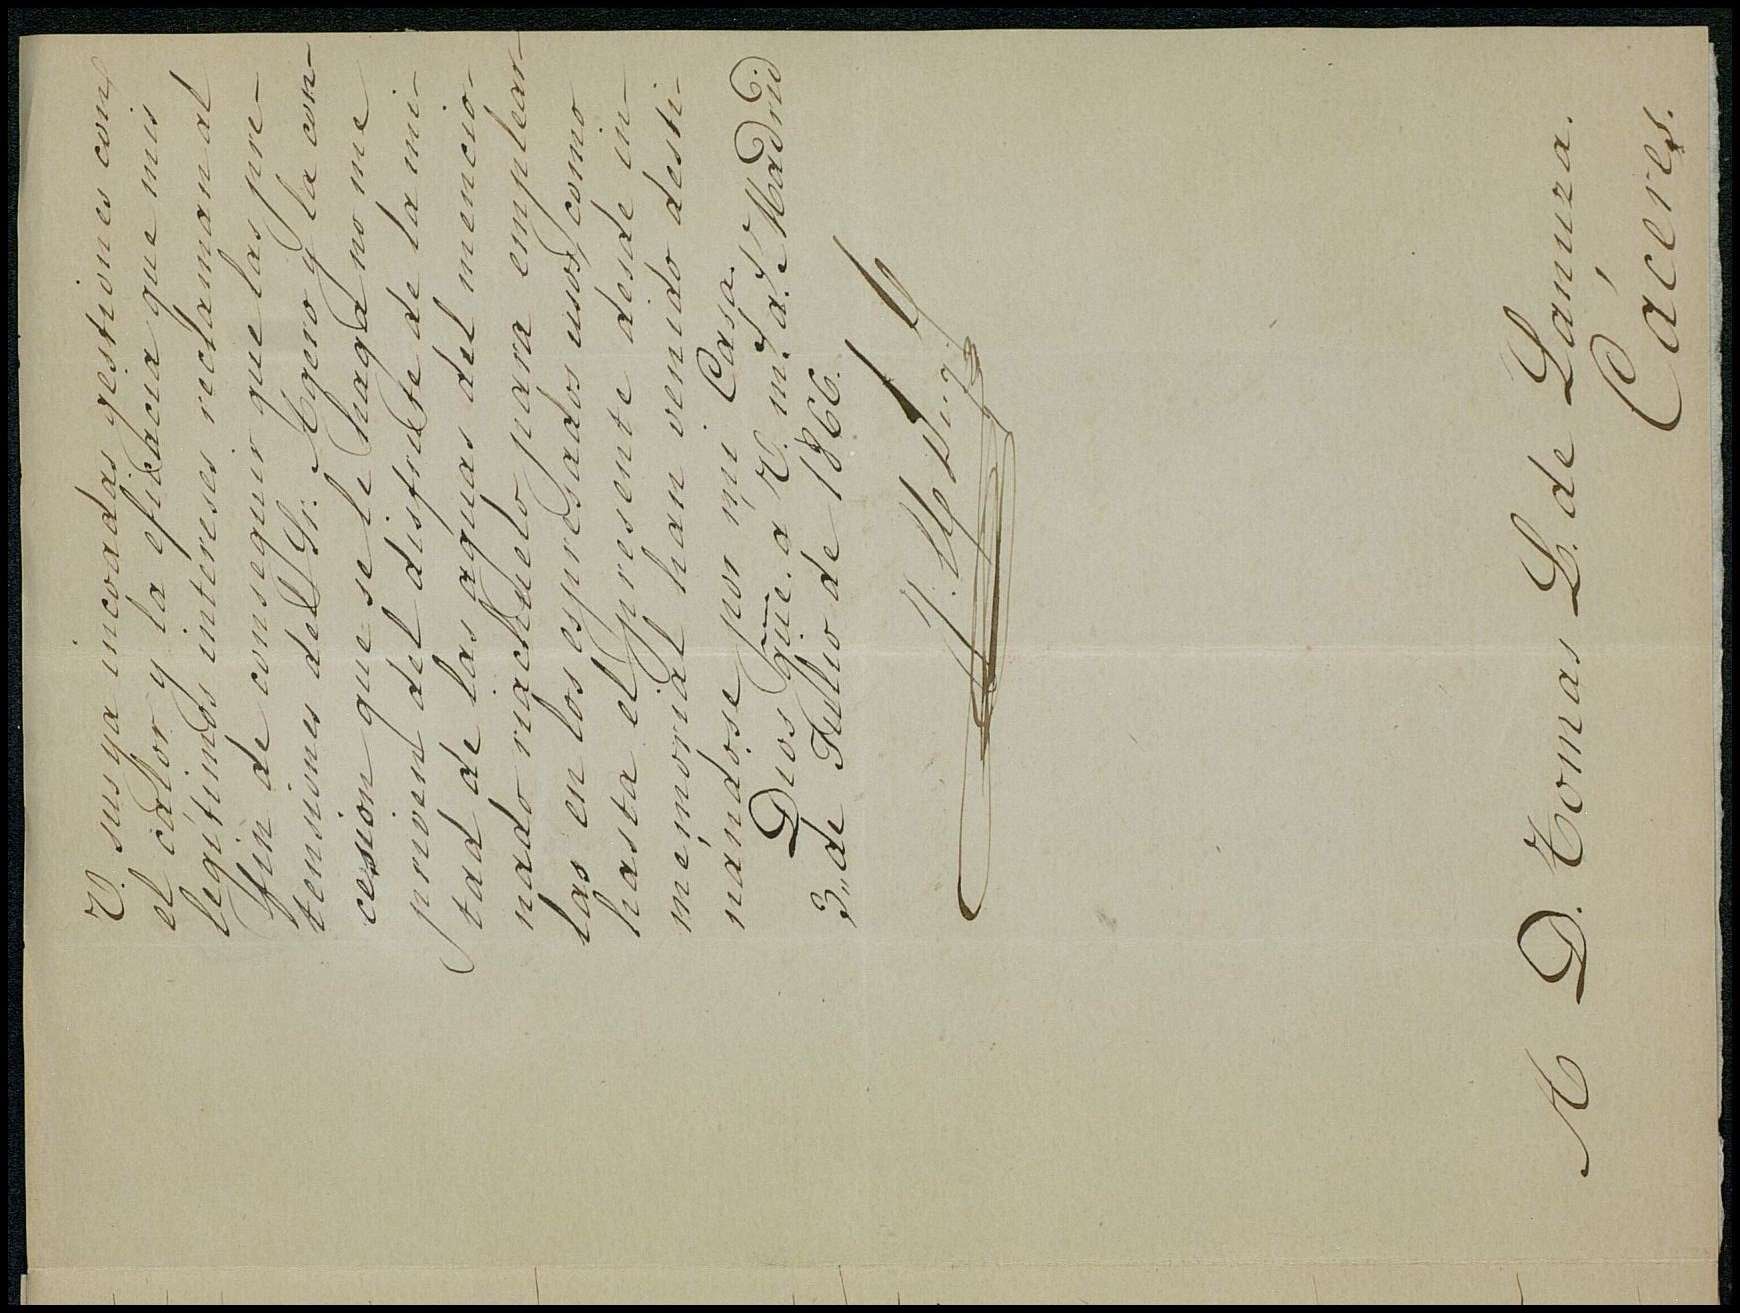 V. sus ya incoadas gestiones con
el calor y la eficacia que mis
legitimos intereses reclaman al
fin de conseguir que las pre-
tensiones del Sr. Agero y la con-
cesion que se le haga no me
priven del disfrute de la mi-
tad de las aguas del mencio-
nado riachuelo para emplear-
las en los espresados usos, como
hasta el presente desde in-
memorial han venido desti-
nandose por mi Casa.
Dios gũe. a V. m.s a.s Madrid
3,, de Jullio de 1866.
A D. Tomas L. de Lanuza.
Cáceres.